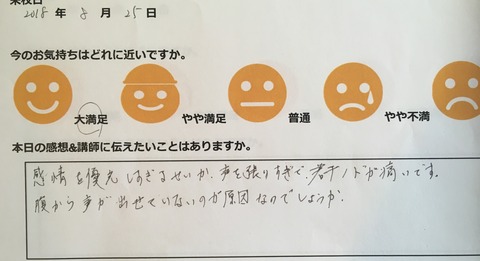 2018 年 8 月 25 日
今のお気持ちはどれに近いですか。
大満足 やや満足 普通 やや不満
本日の感想&講師に伝えたいことはありますか。
感情を優先しすぎるせいか、声を張りすぎで、若干ノドが痛いです。
腹から声が出せていないのが原因なのでしょうか。